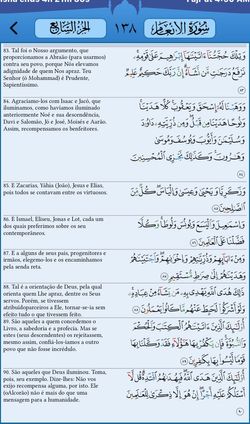 سورة الأنعام ١٣٨ الجزء السابع
83. Tal foi o Nosso argumento, que
proporcionamos a Abraão (para usarmos)
contra seu povo, porque Nós elevamos a
dignidade de quem Nos apraz. Teu
Senhor (ó Mohammad) é Prudente,
Sapientíssimo.
وَتِلْكَ حُجَّتُنَا ءَاتَيْنَٰهَا إِبْرَٰهِيمَ عَلَىٰ قَوْمِهِۦ
نَرْفَعُ دَرَجَٰتٍ مَّن نَّشَاءُ إِنَّ رَبَّكَ حَكِيمٌ عَلِيمٌ
٨٣
84. Agraciamo-los com Isaac e Jacó, que
iluminamos, como havíamos iluminado
anteriormente Noé e sua descendência,
Davi e Salomão, Jó e José, Moisés e Aarão.
Assim, recompensamos os benfeitores.
وَوَهَبْنَا لَهُۥ إِسْحَٰقَ وَيَعْقُوبَ كُلًّا هَدَيْنَا
وَنُوحًا هَدَيْنَا مِن قَبْلُ وَمِن ذُرِّيَّتِهِۦ دَاوُۥدَ
وَسُلَيْمَٰنَ وَأَيُّوبَ وَيُوسُفَ وَمُوسَىٰ
وَهَٰرُونَ وَكَذَٰلِكَ نَجْزِى ٱلْمُحْسِنِينَ
٨٤
85. E Zacarias, Yáhia (João), Jesus e Elias,
pois todos se contavam entre os virtuosos.
وَزَكَرِيَّا وَيَحْيَىٰ وَعِيسَىٰ وَإِلْيَاسَ كُلٌّ مِّنَ
ٱلصَّٰلِحِينَ ٨٥
86. E Ismael, Eliseu, Jonas e Lot, cada um
dos quais preferimos sobre os seu
contemporâneos.
وَإِسْمَٰعِيلَ وَٱلْيَسَعَ وَيُونُسَ وَلُوطًا وَكُلًّا
فَضَّلْنَا عَلَى ٱلْعَٰلَمِينَ ٨٦
87. E a alguns de seus pais, progenitores e
irmãos, elegemo-los e os encaminhamos
pela senda reta.
وَمِنْ ءَابَائِهِمْ وَذُرِّيَّٰتِهِمْ وَإِخْوَٰنِهِمْ وَٱجْتَبَيْنَٰهُمْ
وَهَدَيْنَٰهُمْ إِلَىٰ صِرَٰطٍ مُّسْتَقِيمٍ ٨٧
88. Tal é a orientação de Deus, pela qual
orienta quem Lhe apraz, dentre os Seus
servos. Porém, se tivessem
atribuídoparceiros a Ele, tornar-se-ia sem
efeito tudo o que tivessem feito.
ذَٰلِكَ هُدَى ٱللَّهِ يَهْدِى بِهِۦ مَن يَشَاءُ مِنْ عِبَادِهِۦ
وَلَوْ أَشْرَكُوا۟ لَحَبِطَ عَنْهُم مَّا كَانُوا۟ يَعْمَلُونَ ٨٨
89. São aqueles a quem concedemos o
Livro, a sabedoria e a profecia. Mas se
estes (seus descendentes) os rejeitassem,
mesmo assim, confiá-los-íamos a outro
povo que não fosse incrédulo.
أُو۟لَٰئِكَ ٱلَّذِينَ ءَاتَيْنَٰهُمُ ٱلْكِتَٰبَ وَٱلْحُكْمَ
وَٱلنُّبُوَّةَ فَإِن يَكْفُرْ بِهَا هَٰؤُلَاءِ فَقَدْ وَكَّلْنَا بِهَا
قَوْمًا لَّيْسُوا۟ بِهَا بِكَٰفِرِينَ ٨٩
90. São aqueles que Deus iluminou. Toma,
pois, seu exemplo. Dize-lhes: Não vos
exijo recompensa alguma, por isto. Ele
(oAlcorão) não é mais do que uma
mensagem para a humanidade.
أُو۟لَٰئِكَ ٱلَّذِينَ هَدَى ٱللَّهُ فَبِهُدَىٰهُمُ ٱقْتَدِهْ قُل لَّا
أَسْـَٔلُكُمْ عَلَيْهِ أَجْرًا إِنْ هُوَ إِلَّا ذِكْرَىٰ لِلْعَٰلَمِينَ
٩٠